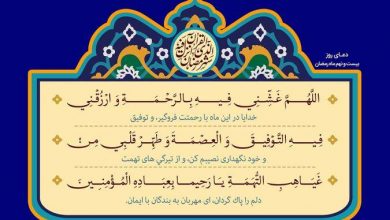 دعـای روز
بیست و نهم ماه رمضان
اللَّهُمَّ غَشِّنِي فِيهِ بِالرَّحْمَةِ وَ ارْزُقْنِي
خدایا در این ماه با رحمتت فروگیر، و توفیق
فِيهِ التَّوْفِيقَ وَ الْعِصْمَةَ وَ طَهِّرْ قَلْبِي مِنْ
و خود نگهداری نصیبم کن، و از تیرگی های تهمت
غَيَاهِبِ التُّهَمَةِ يَا رَحِيما بِعِبَادِهِ الْمُؤْمِنِينَ
دلم را پاك گردان، ای مهربان به بندگان با ایمان.